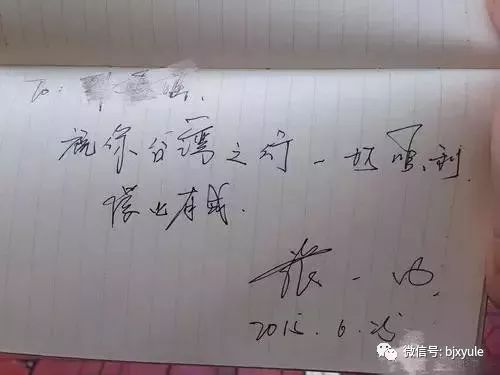 To:
祝你台湾之行一切顺利
学业有成.
张一山
2015.6.25
微信号: bjxyule